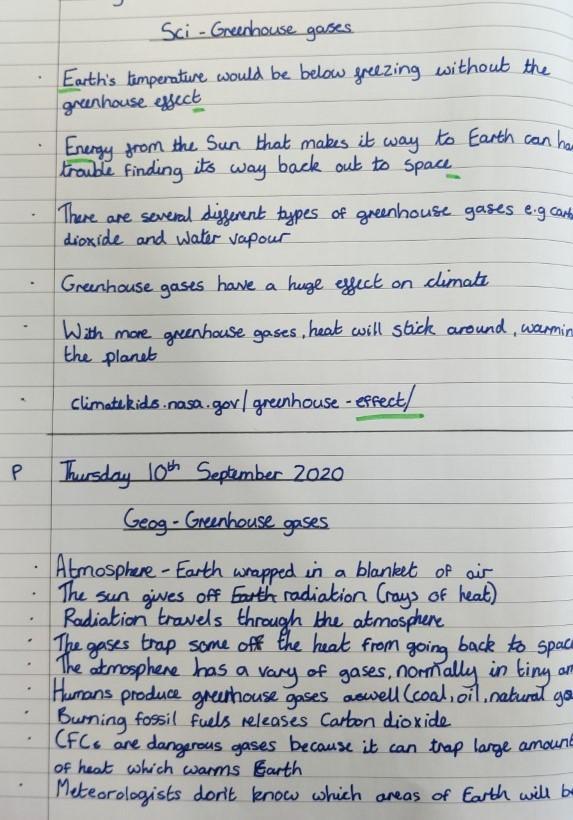 Sci - Greenhouse gases
· Earth's temperature would be below freezing without the
greenhouse effect
· Energy from the Sun that makes it way to Earth can ha
trouble finding its way back out to space
· There are several different types of greenhouse gases e.g carb
dioxide and water vapour
· Greenhouse gases have a huge effect on climate
· With more greenhouse gases, heat will stick around, warmin
the planet
· climatekids.nasa.gov/greenhouse-effect/
P Thursday 10th September 2020
Geog - Greenhouse gases
· Atmosphere - Earth wrapped in a blanket of air
· The sun gives off Earth radiation (rays of heat)
· Radiation travels through the atmosphere
· The gases trap some off the heat from going back to spac
· The atmosphere has a vary of gases, normally in tiny am
· Humans produce greenhouse gases aswell (coal, oil, natural ga
· Burning fossil fuels releases Carbon dioxide
· CFCs are dangerous gases because it can trap large amount
of heat which warms Earth
· Meteorologists don't know which areas of Earth will b